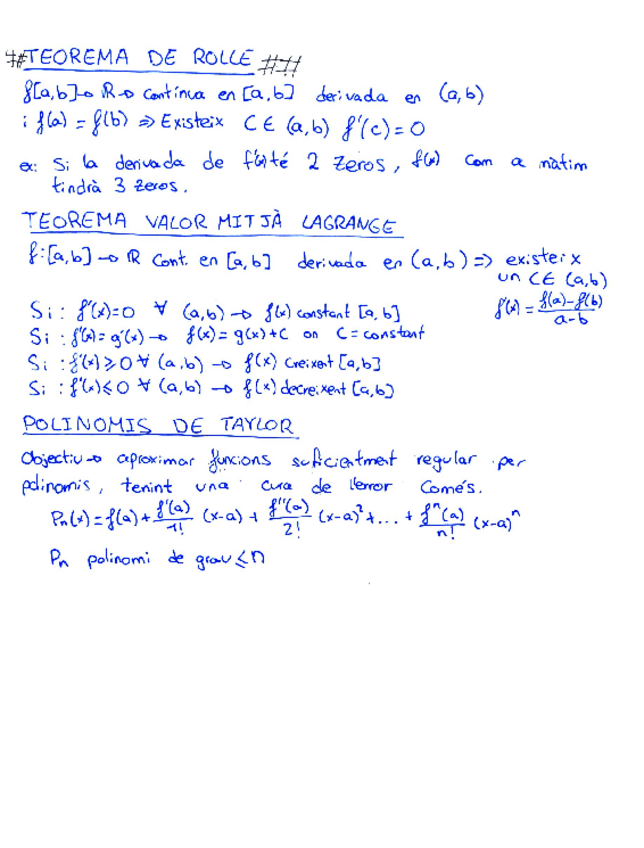 ## TEOREMA DE ROLLE ##
f[a,b]→ℝ→ contínua en [a,b] derivada en (a,b)
i f(a) = f(b) => Existeix C∈ (a,b) f'(c)=0
ex: Si la derivada de f'(x) té 2 zeros, f(x) com a màtim
tindrà 3 zeros.
TEOREMA VALOR MITJÀ LAGRANGE
f:[a,b] → ℝ Cont. en [a,b] derivada en (a,b) => existeix
un C∈ (a,b)
f'(x) = \frac{f(a)-f(b)}{a-b}
Si: f'(x)=0 ∀ (a,b) → f(x) constant [a,b]
Si: f'(x)=g'(x) → f(x)=g(x)+C on C=constant
Si: f'(x)≥0 ∀ (a,b) → f(x) creixent [a,b]
Si: f'(x)≤0 ∀ (a,b) → f(x) decreixent [a,b]
POLINOMIS DE TAYLOR
Objectiu → aproximar funcions suficientment regular per
polinomis, tenint una cura de l'error comés.
Pn(x)=f(a)+\frac{f'(a)}{1!} (x-a) + \frac{f''(a)}{2!} (x-a)²+...+ \frac{fⁿ(a)}{n!} (x-a)ⁿ
Pn polinomi de grau ≤ n